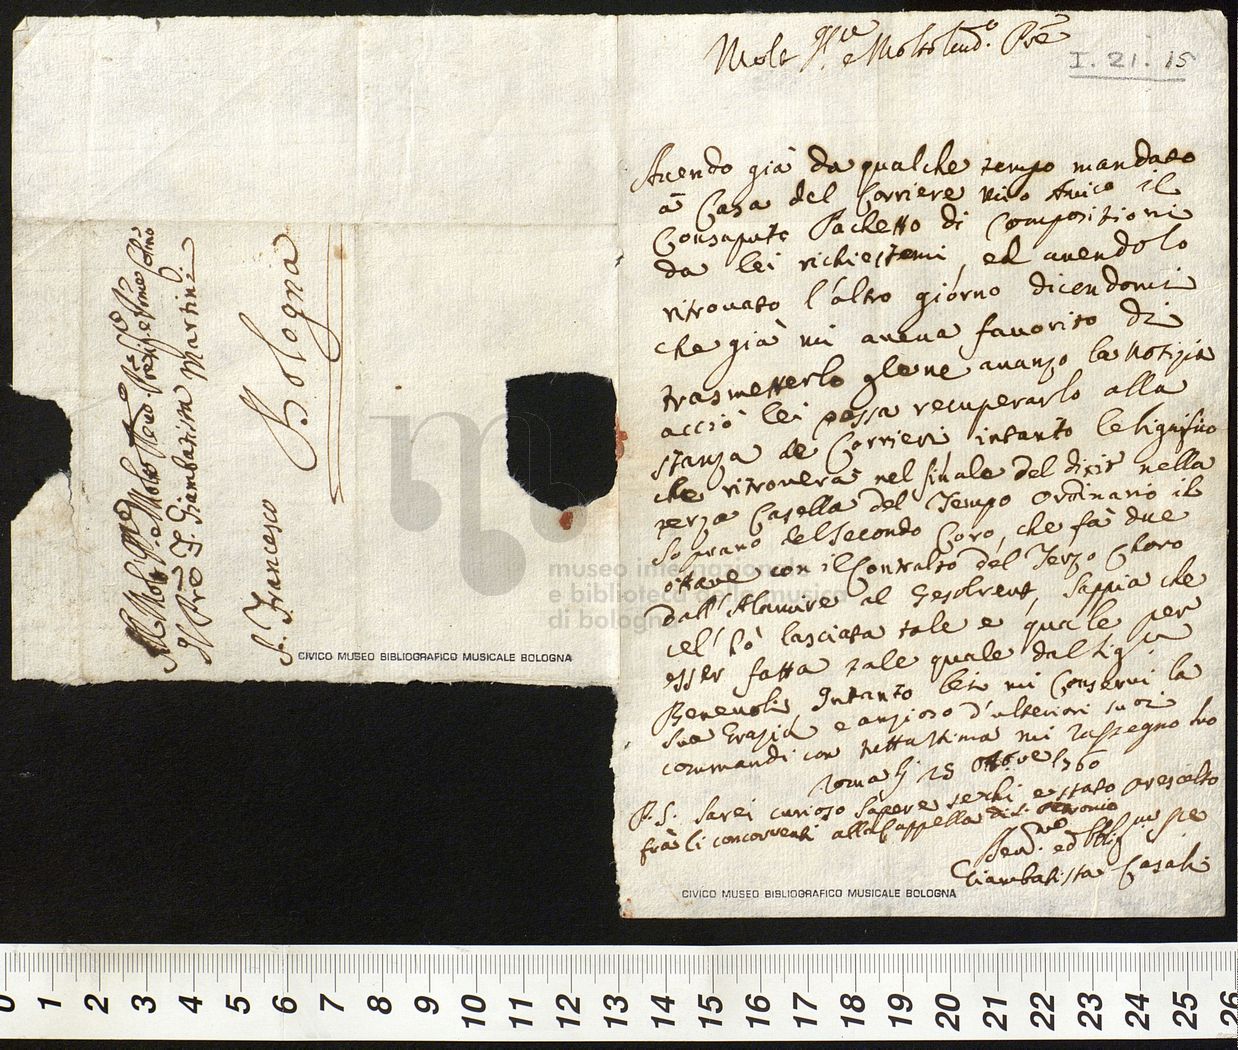 Molt Ill.re e Molto Rend.o Pre
I. 21. 15
Avendo già da qualche tempo mandato
à Casa del Corriere mio Amico il
Consaputo Pachetto di Compositioni
da lei richiestemi, ed avendolo
ritrovato l'altro giorno dicendomi
che già mi aveva favorito di
trasmetterlo gle ne avanzo la notizia
acciò lei possa recuperarlo alla
stanza de Corrieri intanto le significo
che ritroverà nel finale del dixit nella
terza Casella del Tempo ordinario il
Soprano del Secondo Coro, che fà due
ottave con il Contralto del Terzo Choro
dall' Alamire al Gesolreut, sappia che
cel' hò lasciata tale e quale per
esser fatta tale quale dal
Benevoli Intanto lei mi Conservi la
sua Grazia e anzioso d'ulteriori suoi
commandi con tutta stima mi rassegno
Roma li 25 ottbre 1760
P.S. Sarei curioso sapere se chi e stato prescielto
frà li concorrenti alla Cappella di S. Petronio
Dev.mo ed Obblig.mo
Giambatista Casali
Al Molt' Ill.re e Molto Rend.
Il Pre F. Giambatista Martini
S. Francesco
Bologna
museo internazionale
e biblioteca della musica
di bologna
CIVICO MUSEO BIBLIOGRAFICO MUSICALE BOLOGNA
CIVICO MUSEO BIBLIOGRAFICO MUSICALE BOLOGNA
0 1 2 3 4 5 6 7 8 9 10 11 12 13 14 15 16 17 18 19 20 21 22 23 24 25 26